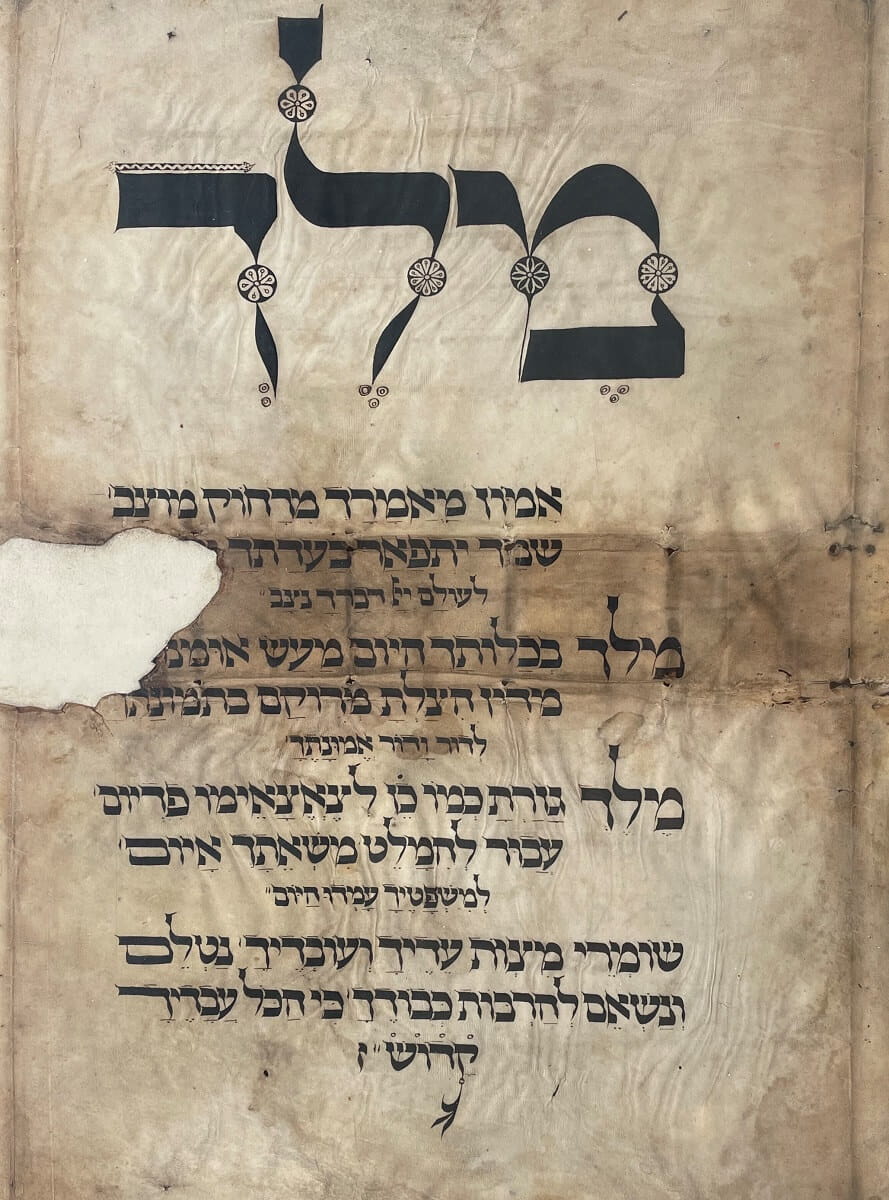 מלך
אמון מאמרך מרחוק מוצב
שמך יתפאר בעדתך
לעולם יי דברך נצב״
מלך בכלותך היום מעש
מדין הצלת מרוקם בתמונתך
לדור ודור אמונתך׳
מלך גזרת כמו כן לצאצאימו פדיום
עבור להמלט משאתך איום׳
למשפטיך עמדו היום״
שומרי מצות עדיך ועובדיך׳ נטלם
ונשאם להרבות כבודך׳ כי הכל עבדיך
קדוש״